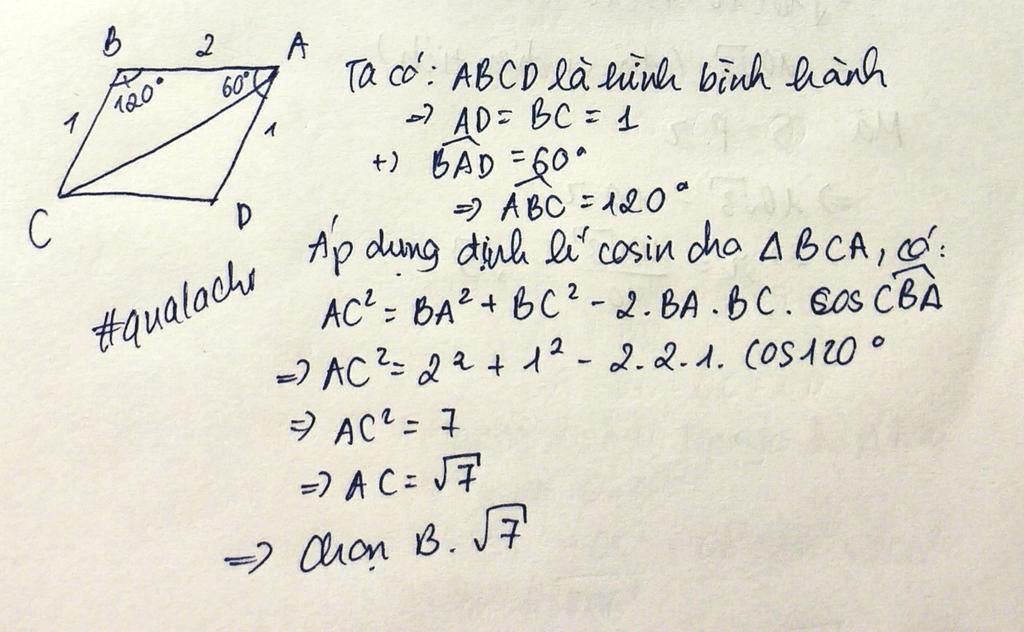 B 2 A
120° 60°
1 1
C D
Ta có: ABCD là hình bình hành
=> AD = BC = 1
+) \widehat{BAD} = 60°
=> \widehat{ABC} = 120°
Áp dụng định lí cosin cho Δ BCA, có:
#qualachi
AC² = BA² + BC² - 2.BA.BC. cos \widehat{CBA}
=> AC² = 2² + 1² - 2.2.1. cos120°
=> AC² = 7
=> AC = √7
=> Chọn B. √7